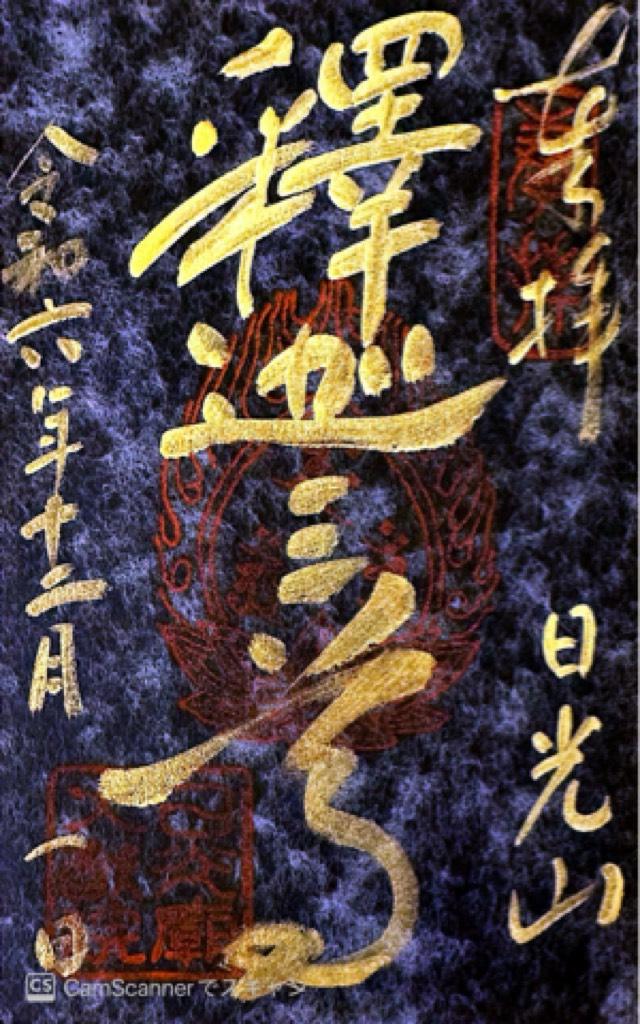 奉拝
日光山
釋迦三尊
令和六年十二月一日
CS CamScannerでスキャン